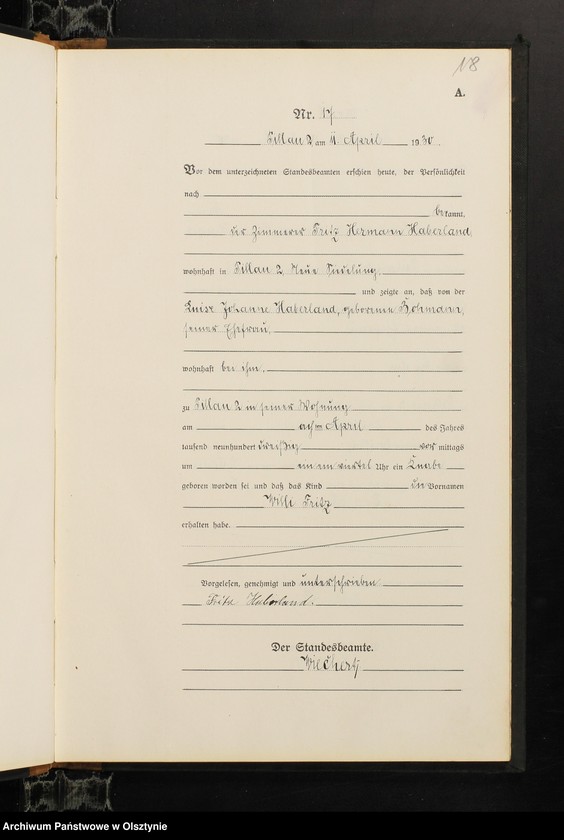 118
A.
Nr. 17
Pillau 2 am 11. April 1930.
Vor dem unterzeichneten Standesbeamten erschien heute, der Persönlichkeit
nach
bekannt,
der Zimmerer Fritz Hermann Haberland
wohnhaft in Pillau 2, Neue Siedelung
und zeigte an, daß von der
Luise Johanne Haberland, geborenen Hohmann,
seiner Ehefrau,
wohnhaft bei ihm,
zu Pillau 2 in seiner Wohnung
am achten April des Jahres
tausend neunhundert dreißig vormittags
um ein ein viertel Uhr ein Knabe
geboren worden sei und daß das Kind die Vornamen
Willi Fritz
erhalten habe.
Vorgelesen, genehmigt und unterschrieben
Fritz Haberland.
Der Standesbeamte.
Wiechert
Archiwum Państwowe w Olsztynie